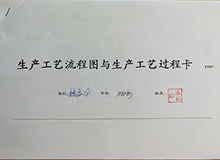 生产工艺流程图与生产工艺过程卡
编制: 审核: 批准: